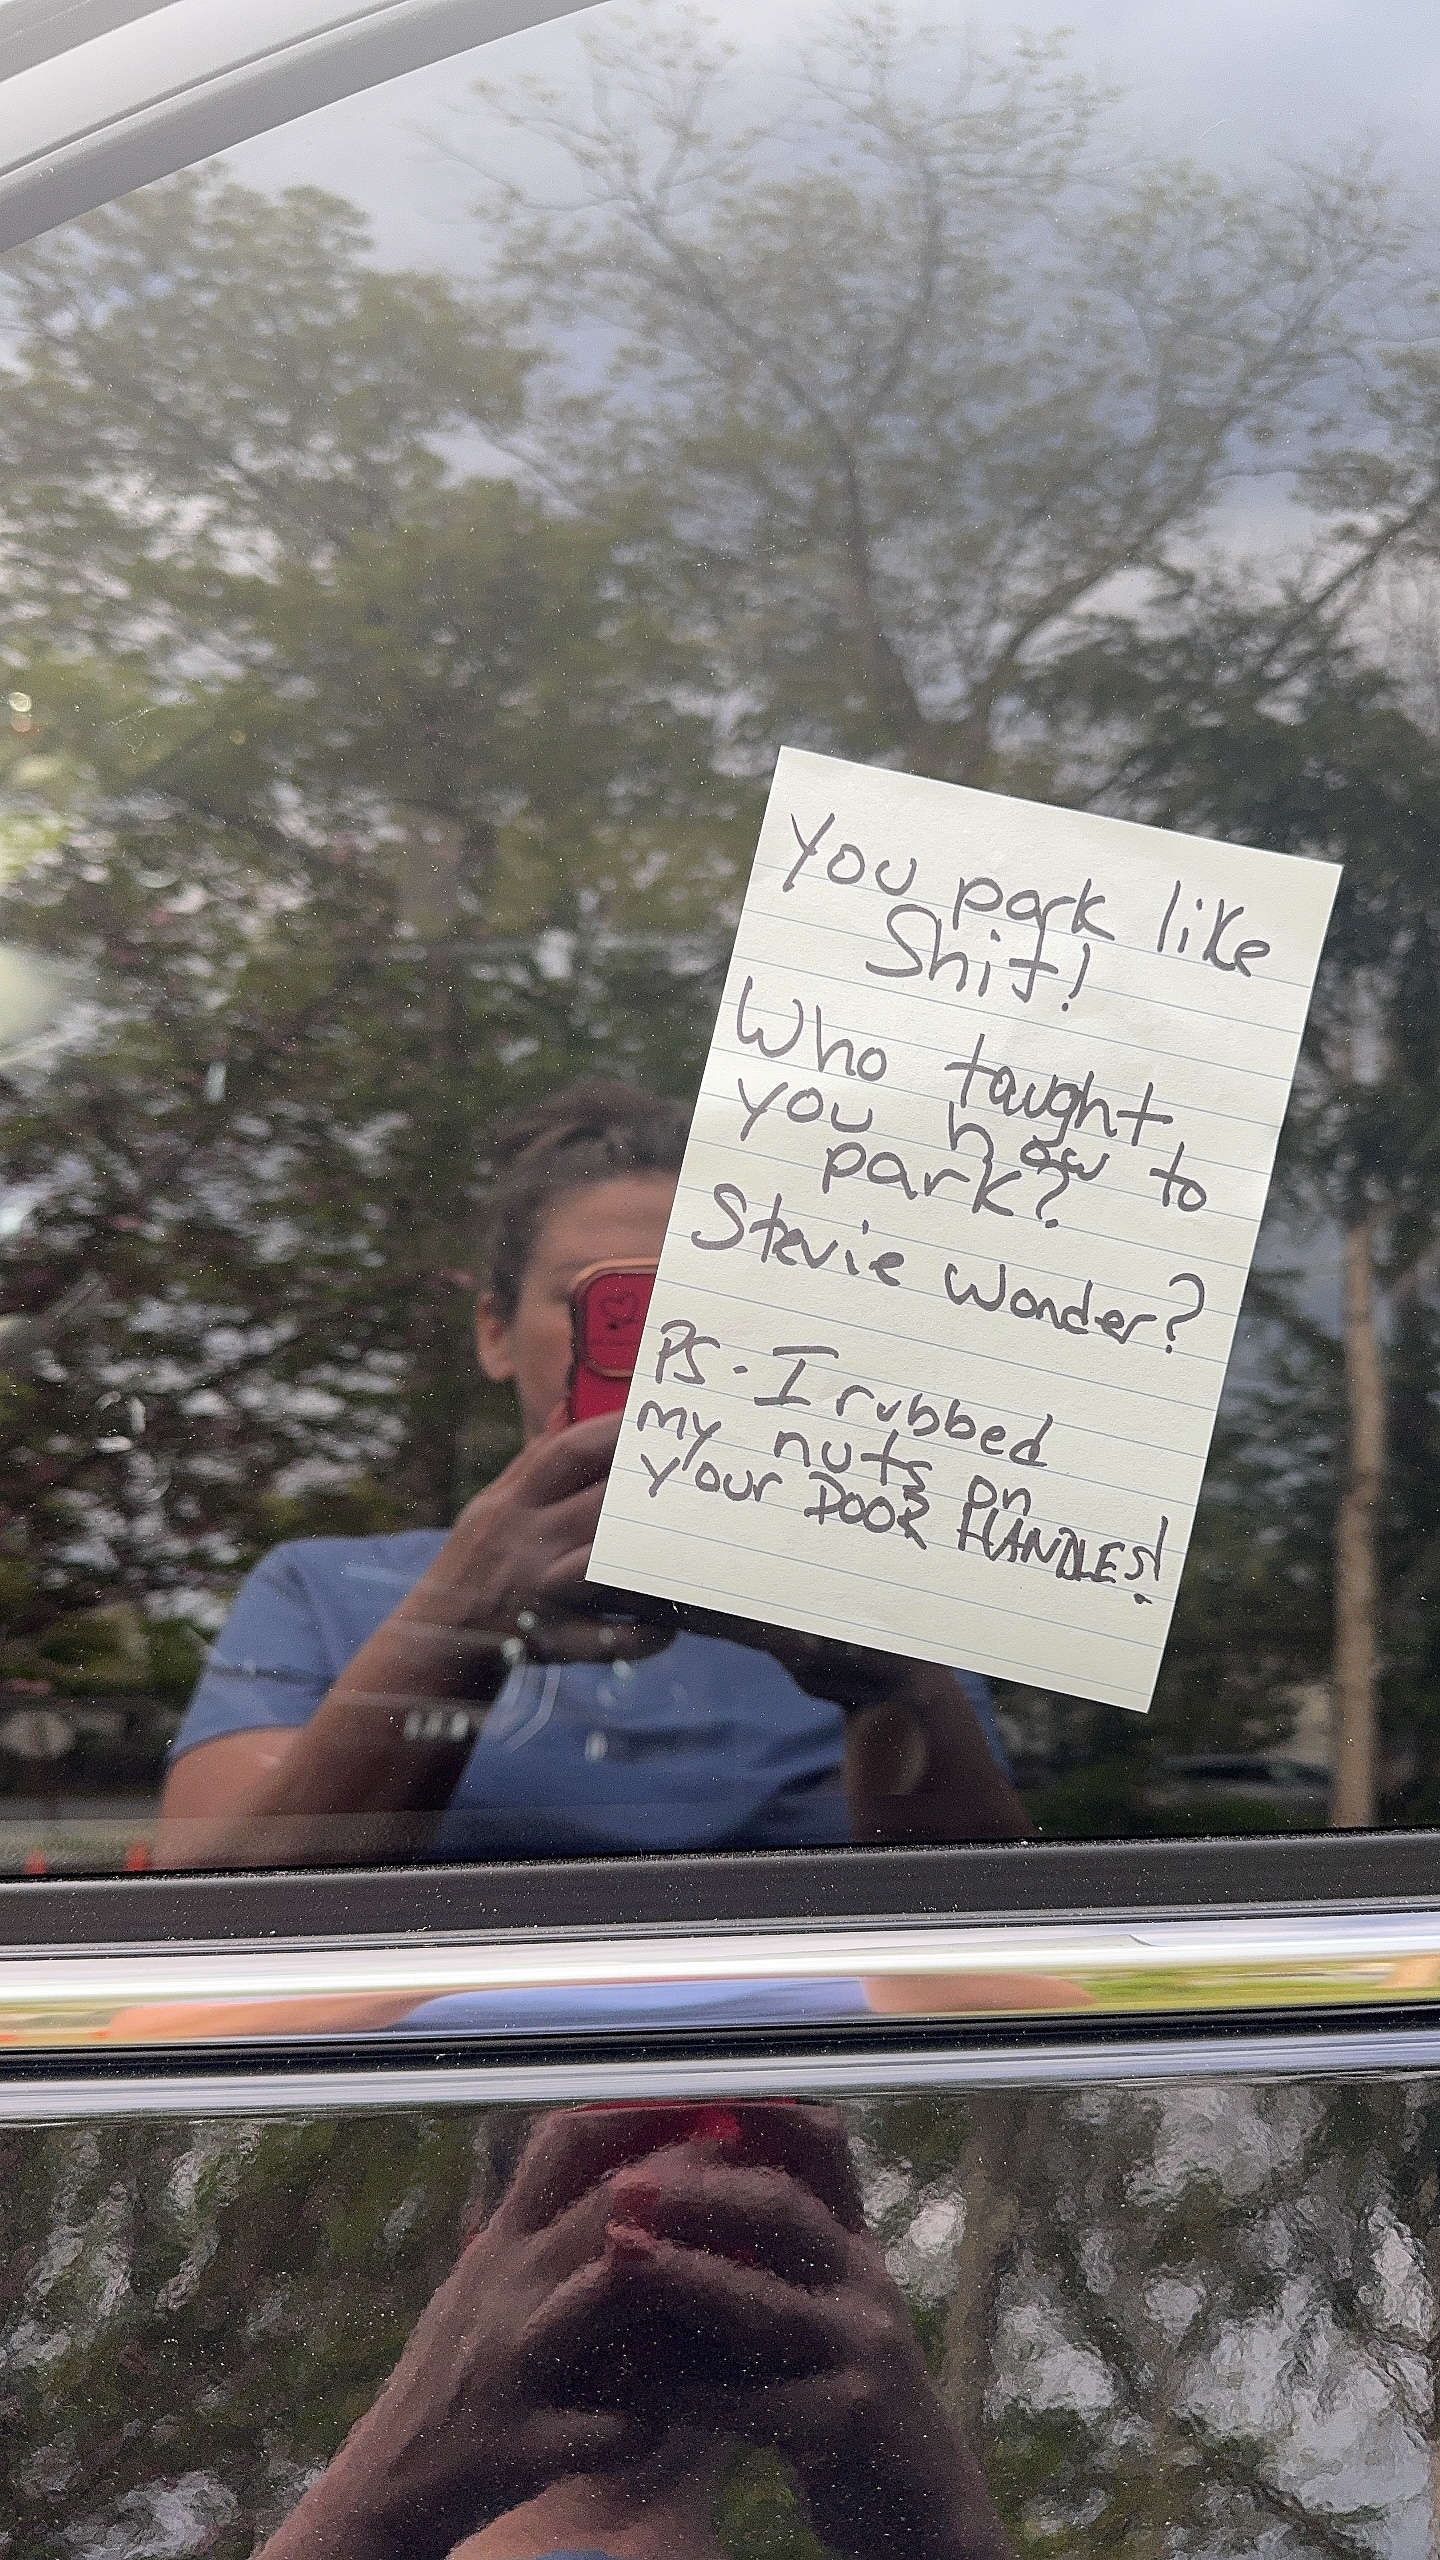 You park like
Shit!
Who taught
you how to
park?
Stevie Wonder?
PS. I rubbed
my nuts on
your DOOR HANDLES!